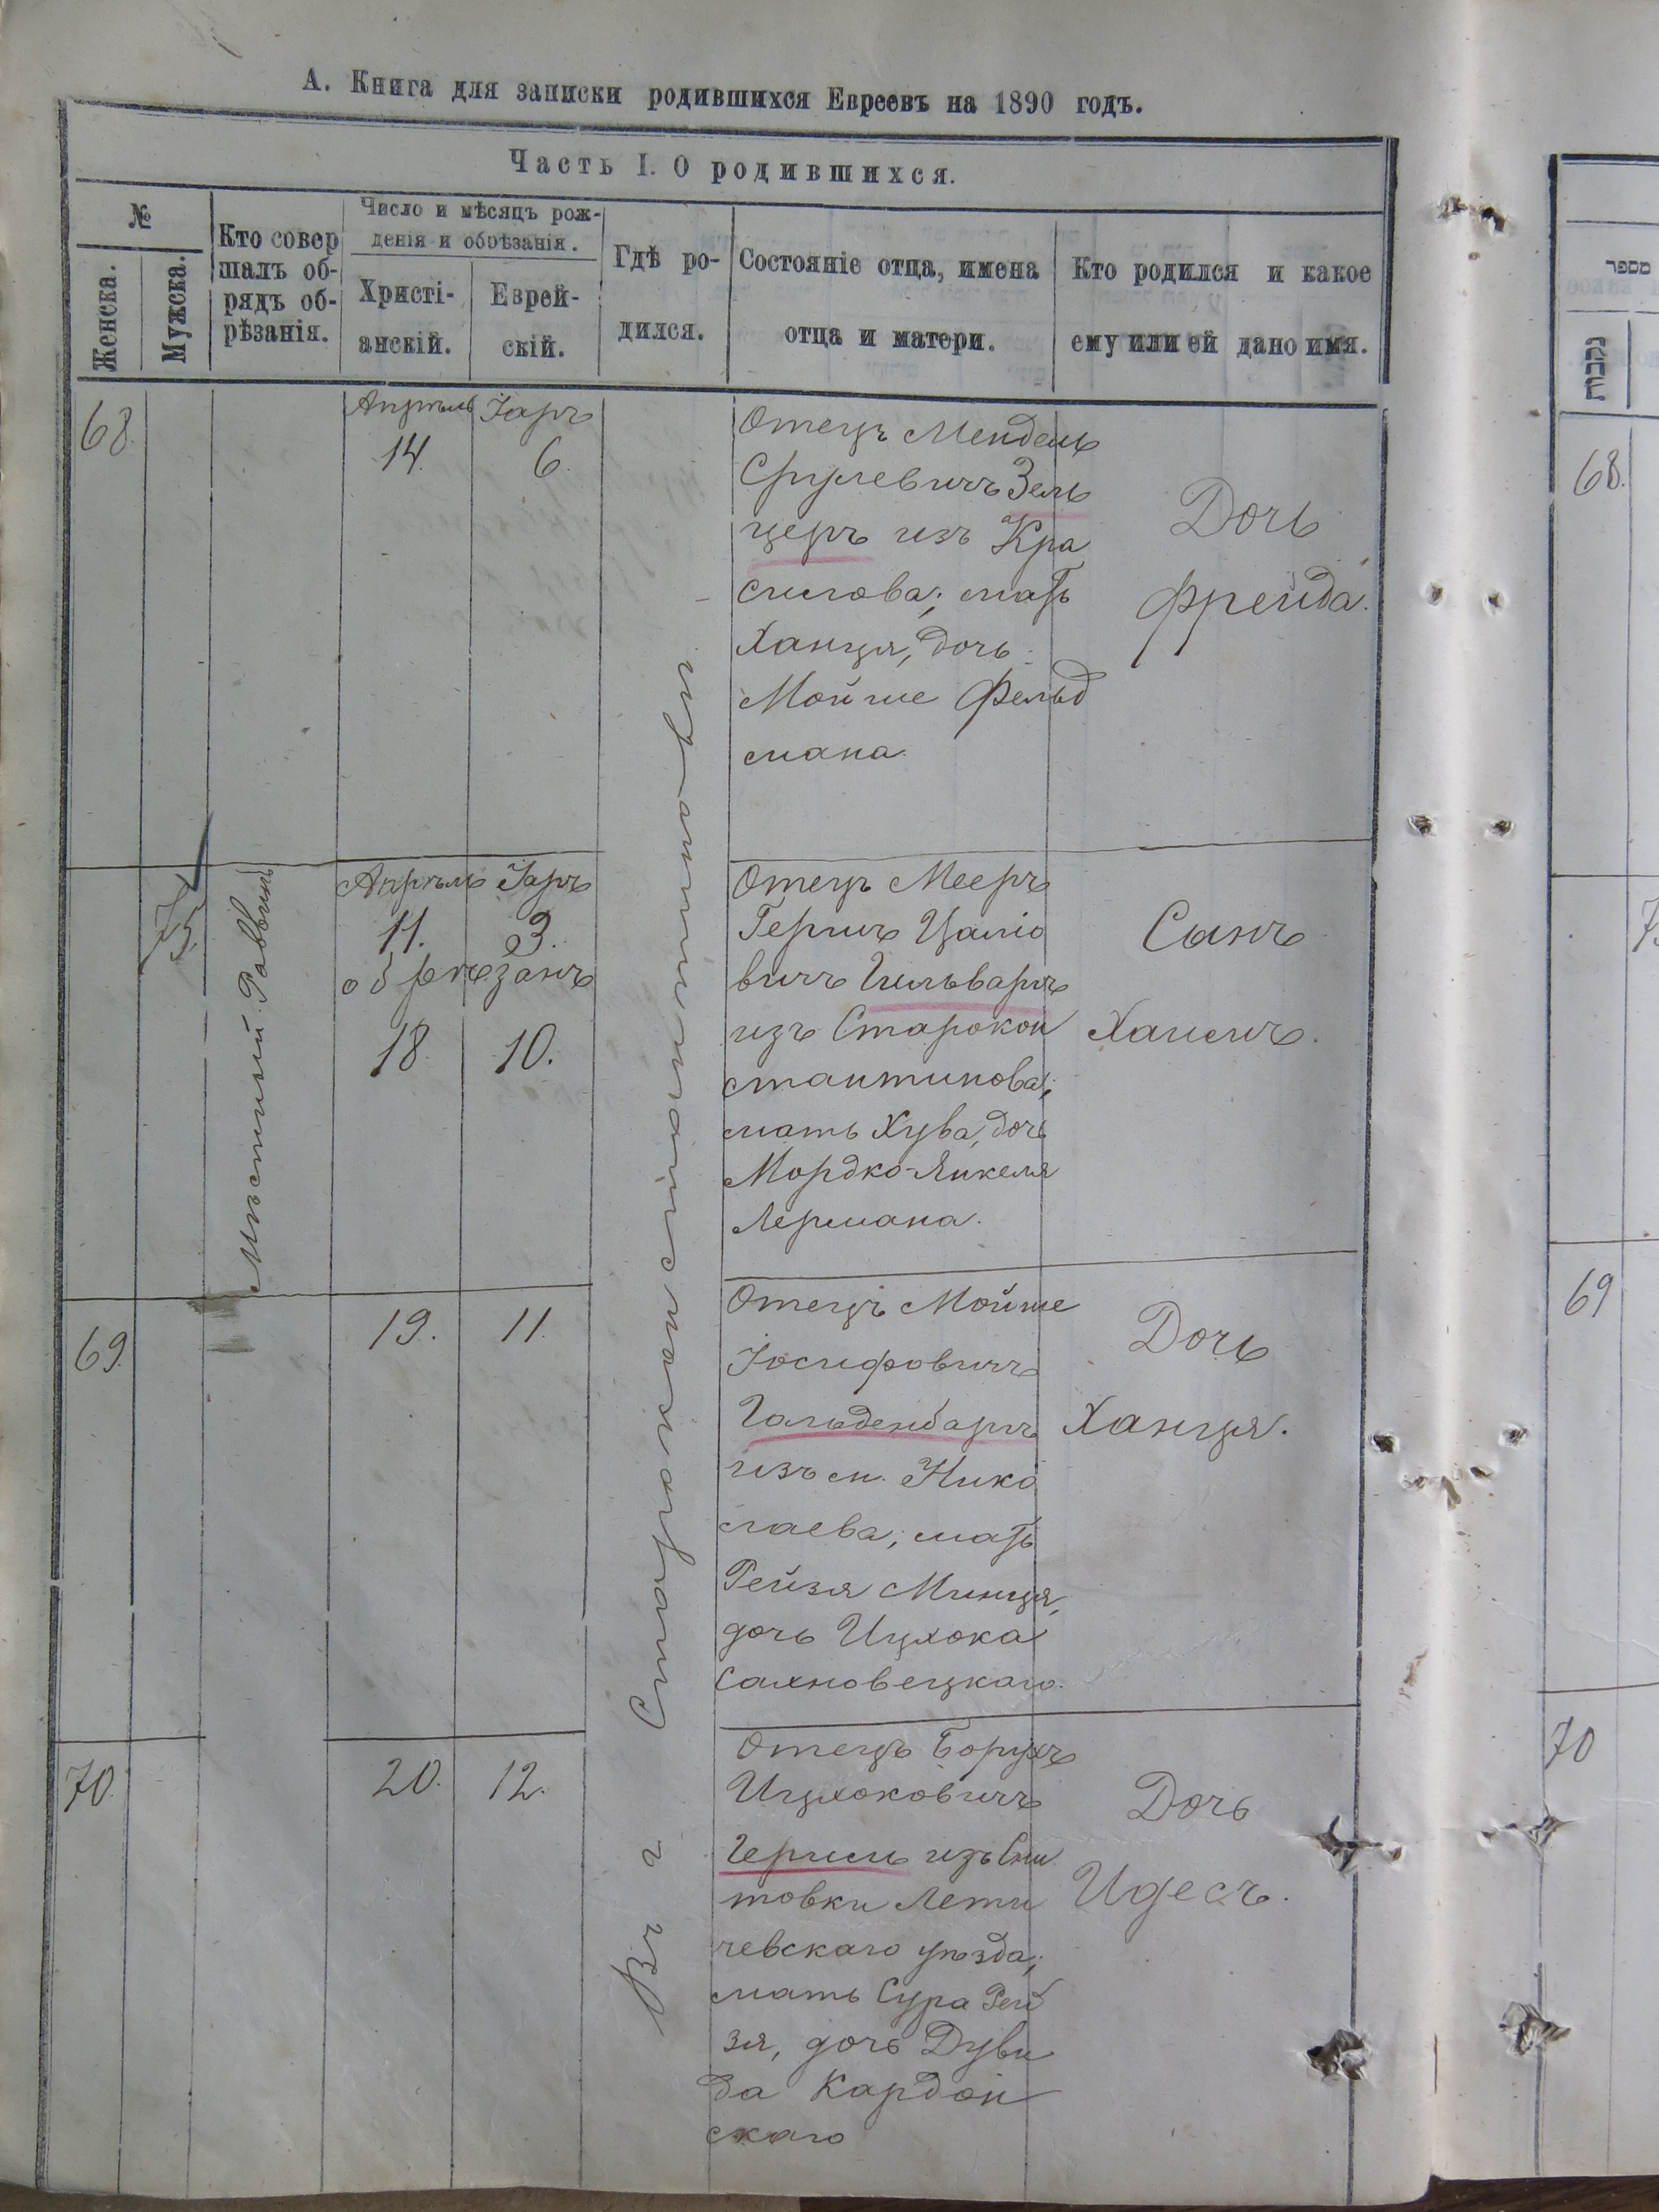 А. Книга для записки родившихся Евреевъ на 1890 годъ.
Часть I. О родившихся.
№
Женска.
Мужска.
Кто совер
шалъ об-
рядъ об-
рѣзанія.
Число и мѣсяцъ рож-
денія и обрѣзанія.
Христі-
анскій.
Еврей-
скій.
Гдѣ ро-
дился.
Состояніе отца, имена
отца и матери.
Кто родился и какое
ему или ей дано имя.
Въ г Староконстантиновѣ
68.
Апрѣль Іаръ
14. 6.
Отецъ Мендель
Срулевичъ Зель
церъ изъ Кра
силова; мать
Ханця, дочь
Мойше Фельд
мана.
Дочь
Фрейда.
75
Мѣстный Раввинъ
Апрѣль Іаръ
11. 3.
обрѣзанъ
18. 10.
Отецъ Мееръ
Гершъ
вичъ Гильваргъ
изъ Старокон
стантинова;
мать Хува, дочь
Мордко-Янкеля
Лермана.
Сынъ
Хаимъ.
69.
19. 11.
Отецъ Мойше
Іосифовичъ
Гольденбаргъ
изъ м. Нико
лаева; мать
Рейзя Минця,
дочь Ицхока
Сахновецкаго.
Дочь
Ханця.
70.
20. 12.
Отецъ Борухъ
Ицхоковичъ
изъ Сни
товки Лети
чевскаго уѣзда;
мать Сура Рей
зя, дочь Дуви
да Кардон
скаго
Дочь
Идесъ.
מספר
נקבות
68.
7
69
70